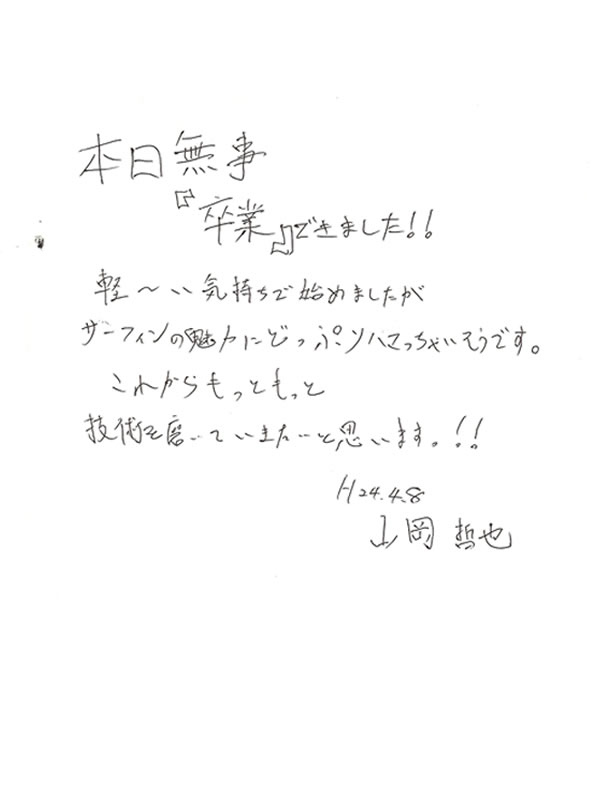 本日無事
『卒業』できました!!
軽〜い気持ちで始めましたが
サーフィンの魅力にどっぷりハまっちゃいそうです。
これからもっともっと
技術を磨いていきたいと思います。!!
H24.4.8
山岡 哲也